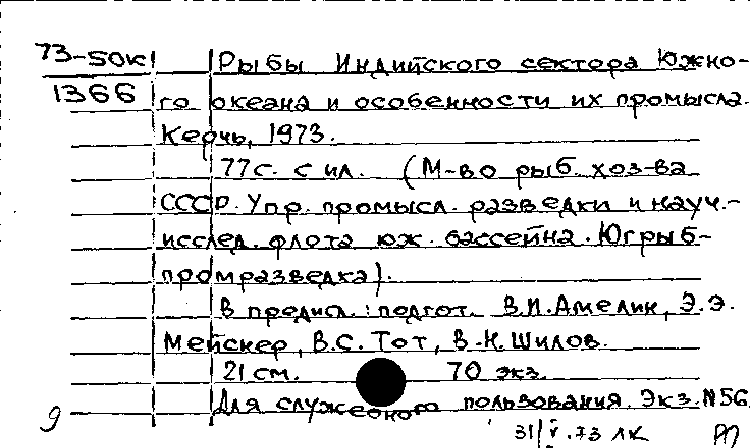 73-50к
1366
Рыбы Индийского сектора Южно-
го океана и особенности их промысла.
Керчь, 1973.
77с. с ил. (М-во рыб. хоз-ва
СССР. Упр. промысл. разведки и науч.-
исслед. флота юж. бассейна. Югрыб-
промразведка).
В предисл.: подгот. В.И.Амелин, Э.Э.
Мейскер, В.С. Тот, В.Н. Шилов.
21 см. 70 экз.
Для служебного пользования. Экз. №56
9
31/V.73 ЛК